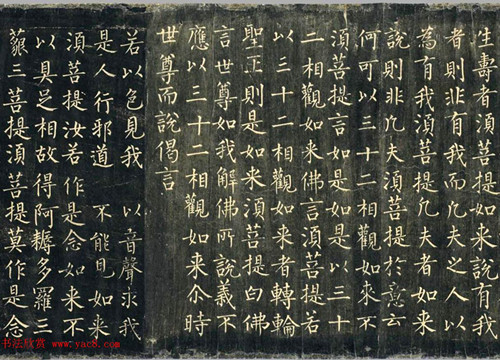 生壽者湏菩提如来說有我
者則非有我而凡夫之人以
為有我湏菩提凡夫者如来
說則非凡夫湏菩提於意云
何可以三十二相觀如来不
湏菩提言如是如是以三十
二相觀如来佛言湏菩提若
以三十二相觀如来者轉輪
聖王則是如来湏菩提白佛
言世尊如我解佛所說義不
應以三十二相觀如来尒時
世尊而說偈言
若以色見我 以音聲求我
是人行邪道 不能見如来
湏菩提汝若作是念如来不
以具足相故得阿耨多羅三
藐三菩提湏菩提莫作是念
书法欣赏 www.yac8.com